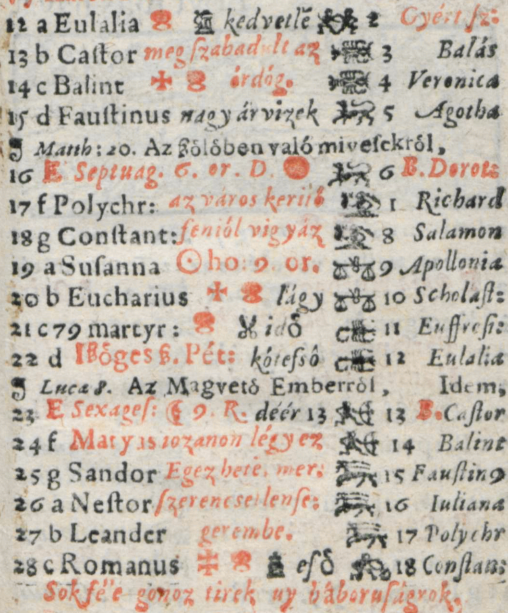 12 a Eulalia kedvetlẽ 2 Gyért sz:
13 b Caſtor meg ſzabadult az 3 Balás
14 c Balint ördög. 4 Veronica
15 d Fauſtinus nagy árvizek 5 Agotha
Matth: 20. Az ſzőlőben való miveſekről,
16 E Septuag. 6. or. D. 6 B. Dorot:
17 f Polychr: az város kerijlő 1 Richard
18 g Conſtant: vigyáz 8 Salamon
19 a Suſanna ☉ ho: 9. or. 9 Apollonia
20 b Eucharius lágy 10 Scholaſt:
21 c 79 martyr: idő 11 Euffroſi:
22 d Üſzöges ſz. Pét: kőteſső 12 Eulalia
Luca 8. Az Magvető Emberről, Idem,
23 E Sexageſ: 9. R. déér 13 13 B. Caſtor
24 f Matyas légy ez 14 Balint
25 g Sandor Egez heté, mer: 15 Fauſtin9
26 a Neſtor ſzerencsetlenſe: 16 Iuliana
27 b Leander gerembe. 17 Polychr
28 c Romanus eſő 18 Conſtan:
Sokféle gonoz tirek uy háboruſágrok.